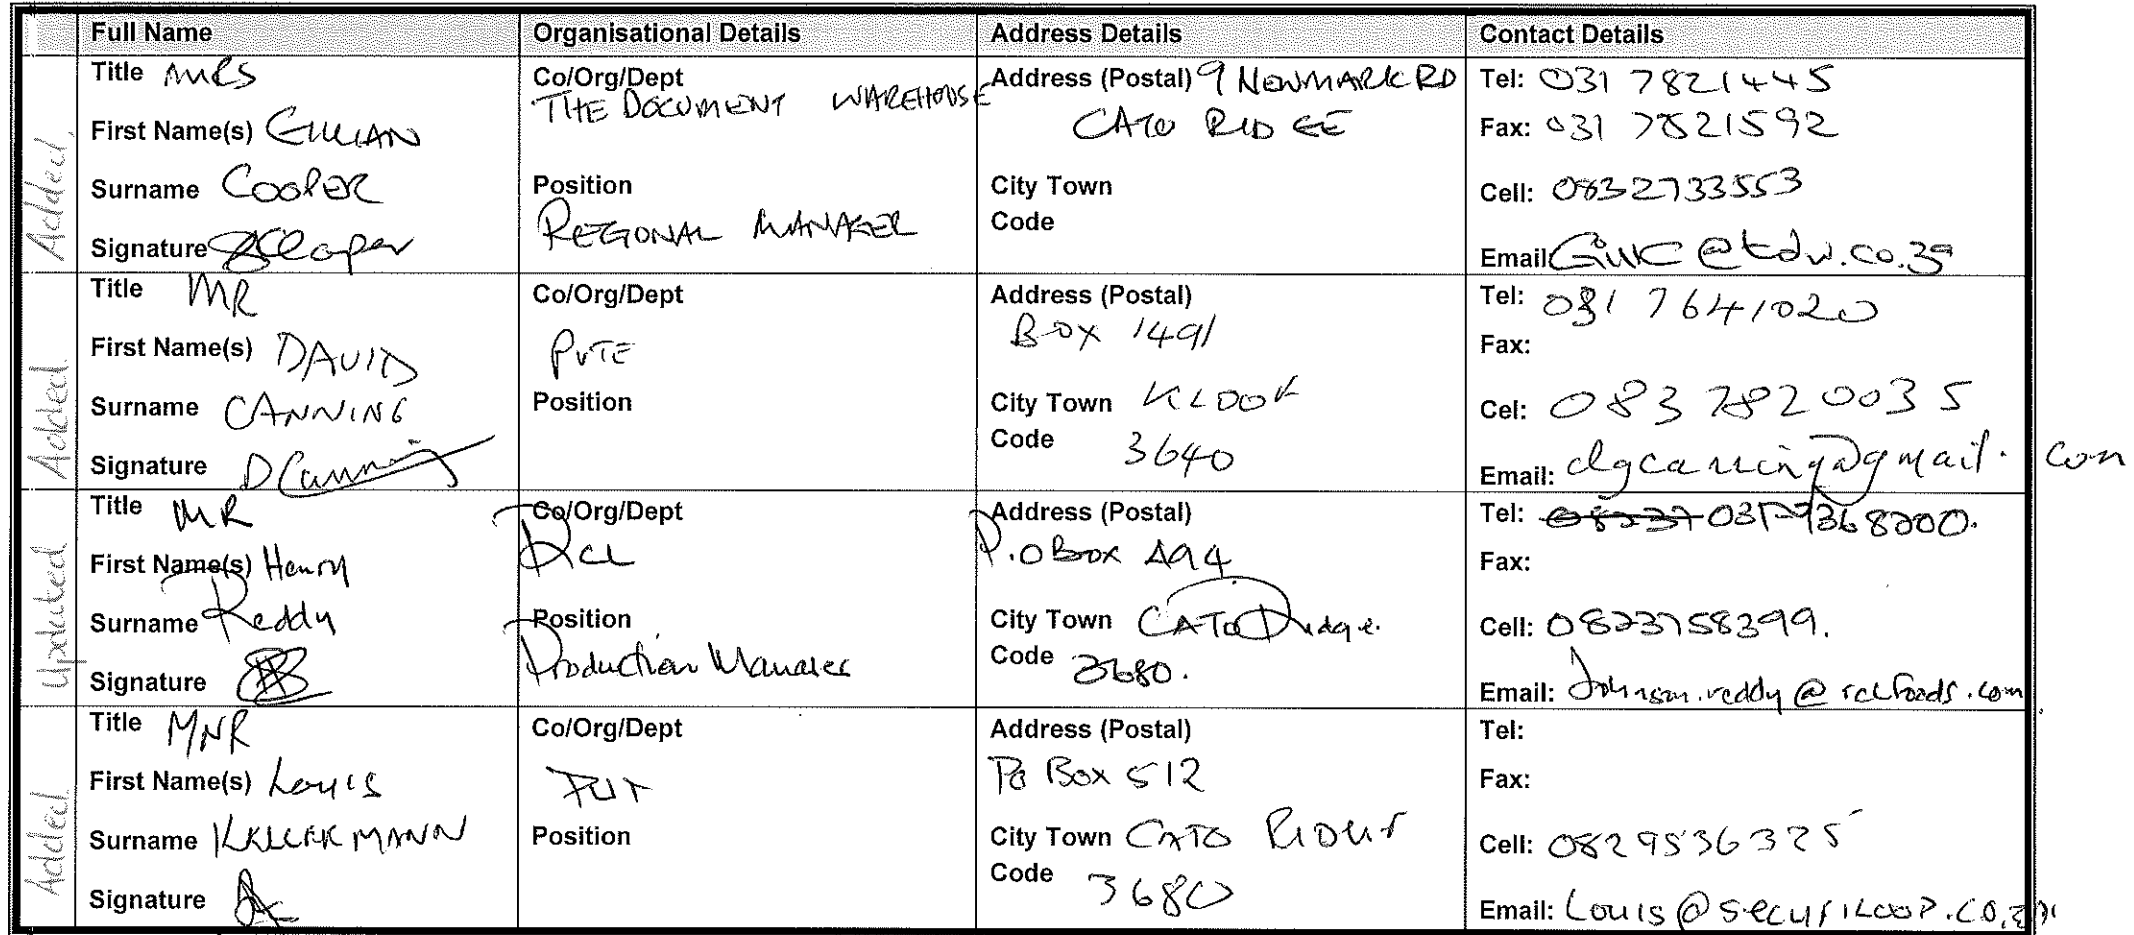 Full Name Organisational Details Address Details Contact Details
Added
Title MRS
First Name(s) GILLIAN
Surname COOPER
Signature
Co/Org/Dept
THE DOCUMENT WAREHOUSE
Position
REGIONAL MANAGER
Address (Postal) 9 NEWMARK RD
CATO RIDGE
City Town
Code
Tel: 031 7821445
Fax: 031 7821592
Cell: 0832733553
Email: GillC@tdw.co.za
Added
Title MR
First Name(s) DAVID
Surname CANNING
Signature D Canning
Co/Org/Dept
PVTE
Position
Address (Postal)
BOX 1491
City Town KLOOF
Code 3640
Tel: 031 7641020
Fax:
Cel: 083 7820035
Email: dgcanning@gmail.com
Updated
Title MR
First Name(s) Henry
Surname Reddy
Signature
Co/Org/Dept
RCL
Position
Production Manager
Address (Postal)
P.O Box A94
City Town CATO Ridge.
Code 3680.
Tel: 08237 031 7368200.
Fax:
Cell: 0823758399.
Email: Johnson.reddy@rclfoods.com
Added
Title MNR
First Name(s) Louis
Surname
Signature
Co/Org/Dept
Position
Address (Postal)
PO Box 512
City Town CATO RIDGE
Code 3680
Tel:
Fax:
Cell: 0829536325
Email: Louis@securiloop.co.za